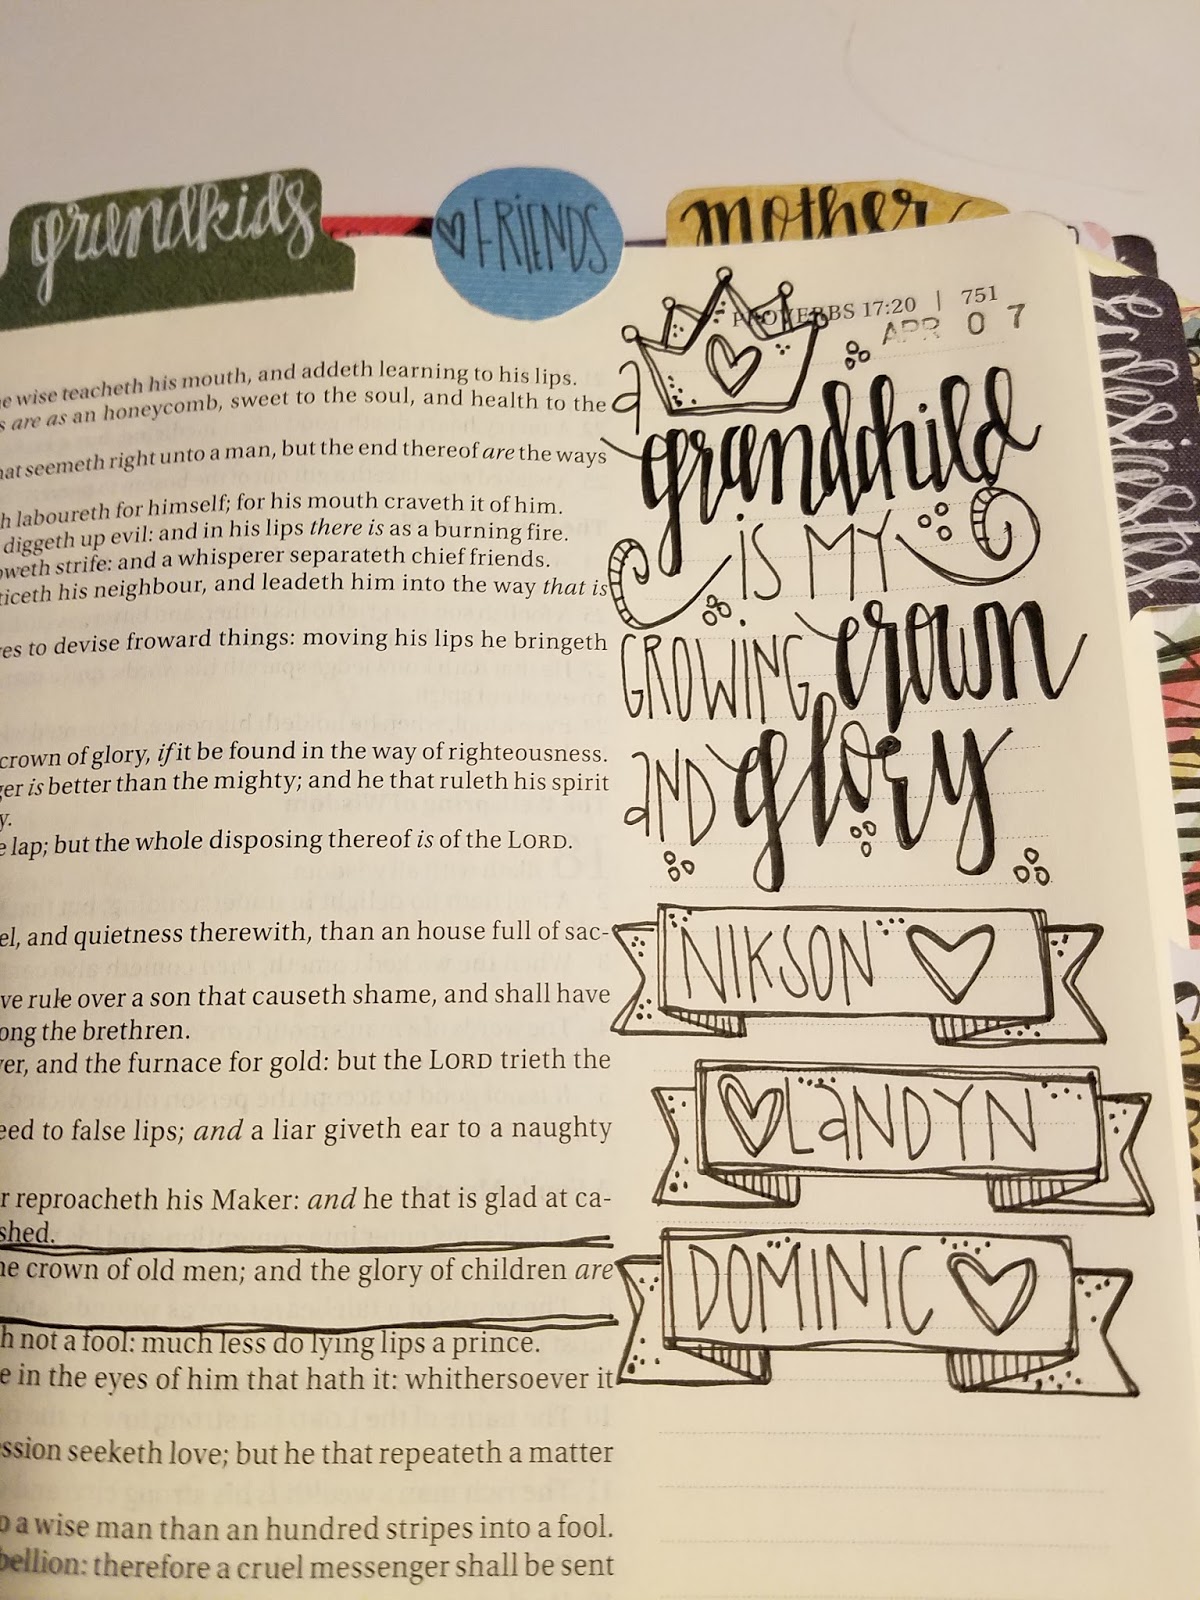 grandkids
FRIENDS
mother
PROVERBS 17:20 | 751
APR 07
wise teacheth his mouth, and addeth learning to his lips.
are as an honeycomb, sweet to the soul, and health to the
seemeth right unto a man, but the end thereof are the ways
laboureth for himself; for his mouth craveth it of him.
diggeth up evil: and in his lips there is as a burning fire.
strife: and a whisperer separateth chief friends.
his neighbour, and leadeth him into the way that is
to devise froward things: moving his lips he bringeth
crown of glory, if it be found in the way of righteousness.
is better than the mighty; and he that ruleth his spirit
lap; but the whole disposing thereof is of the LORD.
and quietness therewith, than an house full of sac-
rule over a son that causeth shame, and shall have
the brethren.
and the furnace for gold: but the LORD trieth the
to false lips; and a liar giveth ear to a naughty
reproacheth his Maker: and he that is glad at ca-
crown of old men; and the glory of children are
not a fool: much less do lying lips a prince.
in the eyes of him that hath it: whithersoever it
seeketh love; but he that repeateth a matter
a wise man than an hundred stripes into a fool.
therefore a cruel messenger shall be sent
a
grandchild
IS MY
GROWING crown
aND glory
NIKSON
LaNDYN
DOMINIC